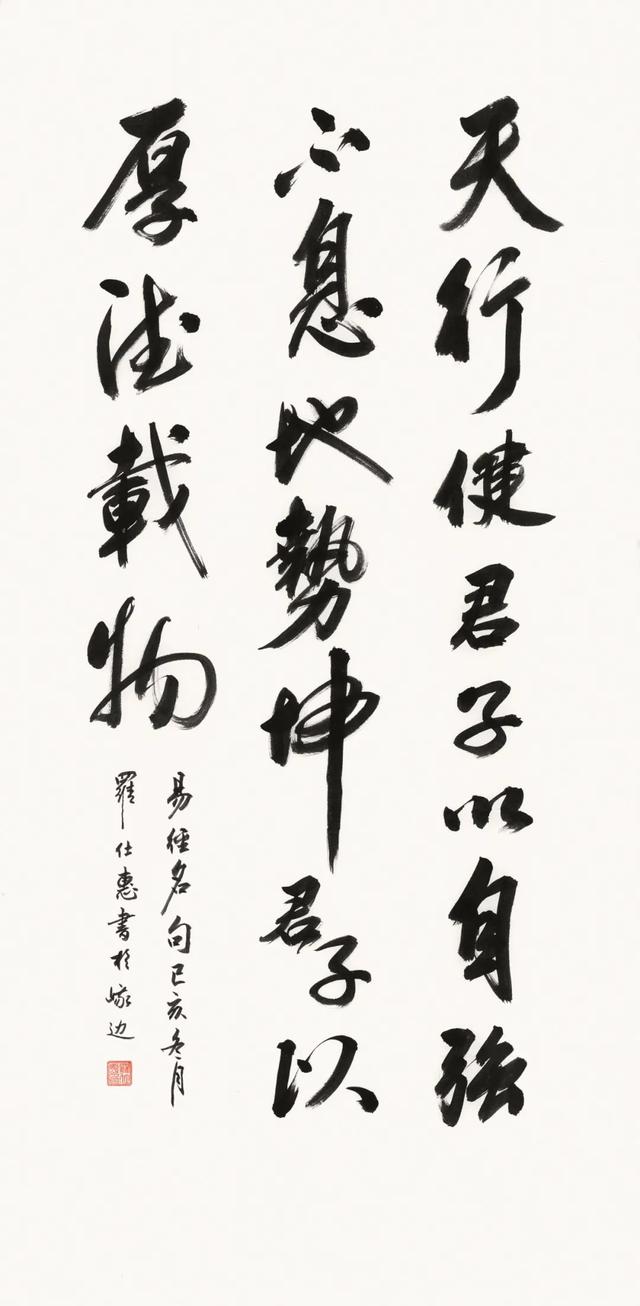 天行健君子以自強
不息地勢坤君子以
厚德載物
易經名句己亥冬月
羅仕惠書於峨边